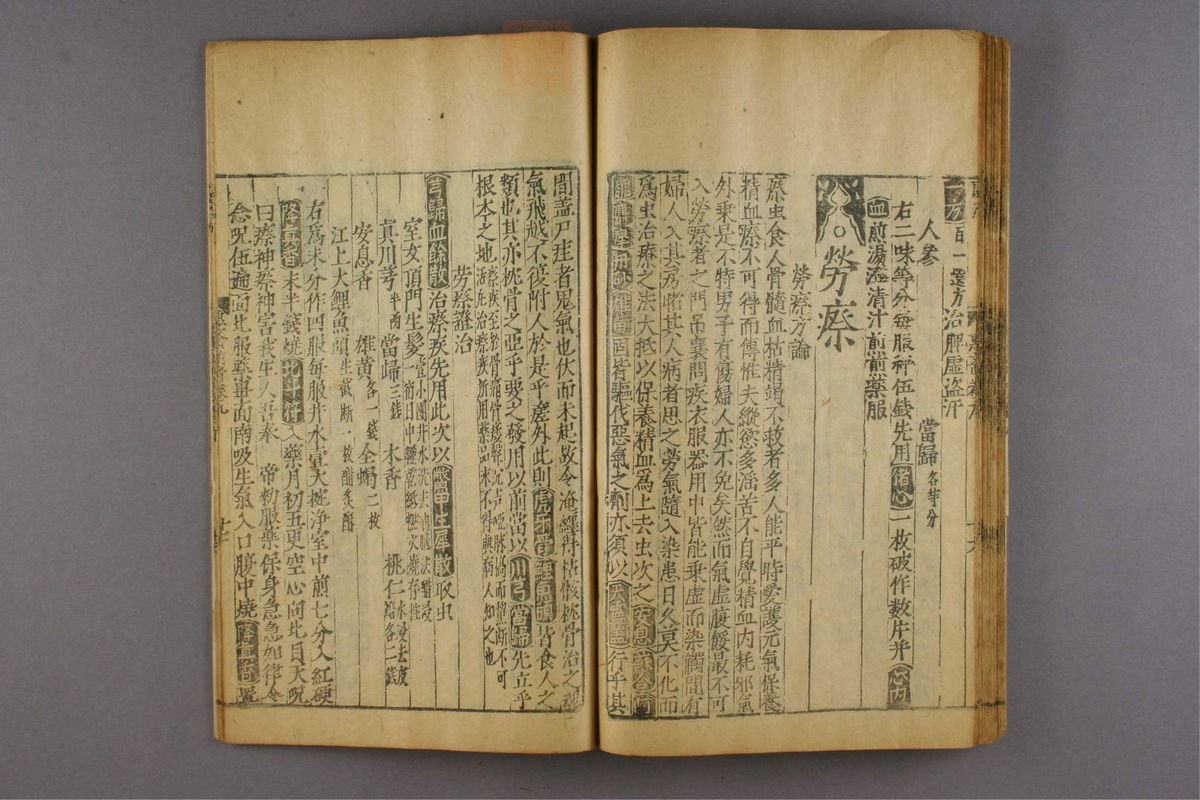 百一選方治脾虛盜汗
人參 當歸各等分
右二味等分每服秤伍錢先用猪心一枚破作数片并心內
血煎湯澄清汁煎前藥服
勞瘵
勞瘵方論
瘵虫食人骨髓血枯精竭不救者多人能平時愛護元氣保養
精血瘵不可得而傳惟夫縱慾多淫苦不自覺精血內耗邪氣
外乗是不特男子有傷婦人亦不免矣然而氣虛腹餒最不可
入勞瘵者之門吊䘮問疾衣服器用中皆能乗虛而染觸間有
婦人入其房睹其人病者思之勞氣隨入染患日久莫不化而
爲虫治瘵之法大抵以保養精血爲上去虫次之安息蘇合
固皆驅伐惡氣之劑亦須以天靈蓋行乎其
間蓋尸疰者鬼氣也伏而未起故令淹纏得枯骸枕骨治之魂
氣飛越不復附人於是乎瘥外此則虎牙骨鯉魚頭皆食人之
類也其亦枕骨之亞乎要之發用以前當以川芎當歸先立乎
根本之地
勞瘵證治
芎歸血餘散治瘵疾先用此次以鱉甲生犀散取虫
室女頂門生髮
真川芎半兩 當歸三錢 木香 桃仁水浸去皮焙各二錢
安息香 雄黃各一錢 全蝎二枚
江上大鯉魚頭生截断一枚醋炙酥
右爲末分作四服每服井水壹大椀浄室中煎七分入紅硬
降真香末半錢燒北斗符入藥月初五更空心向北目天咒
曰瘵神瘵神害我生人吾奉 帝勑服藥保身急急如律令
念咒伍遍面北服藥畢面南吸生氣入口腹中燒降真香置